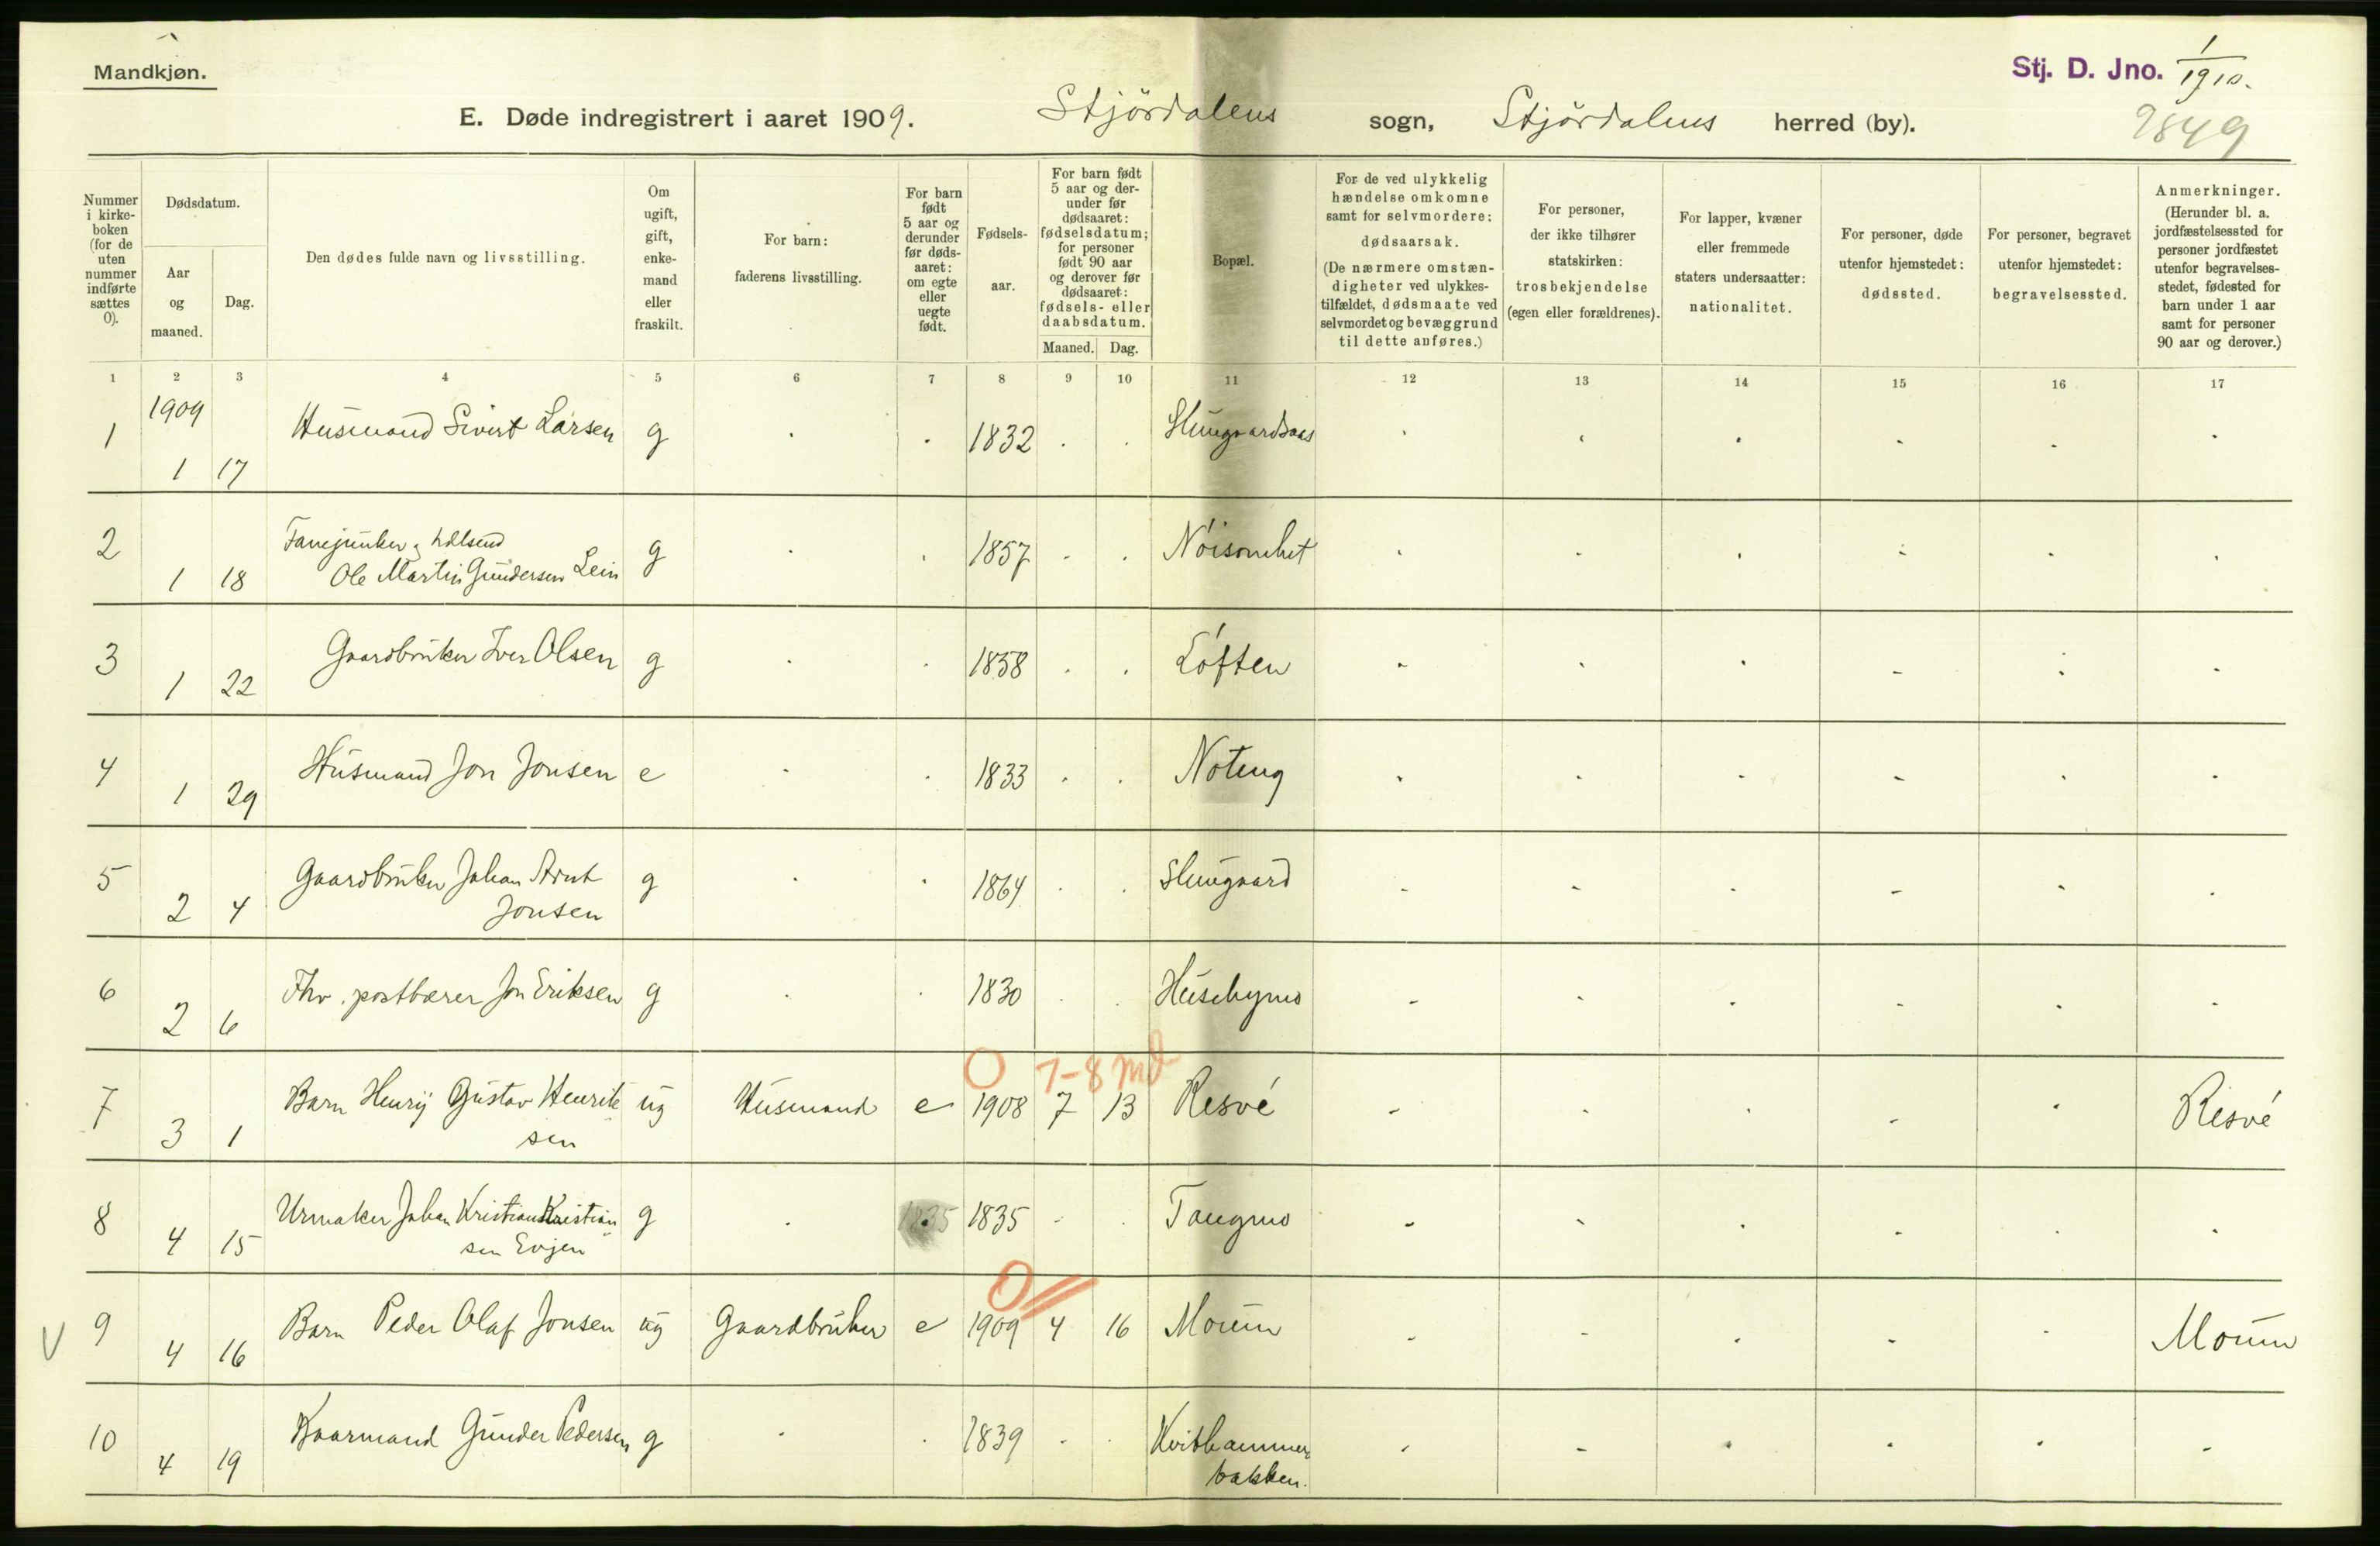 Mandkjøn.
Stj. D. Jno. 1/1910.
E. Døde indregistrert i aaret 1909. Stjördalens sogn, Stjördalens herred (by).
2849
Nummer i kirke-boken (for de uten nummer indførte sættes 0).
Dødsdatum.
Aar og maaned.
Dag.
Den dødes fulde navn og livsstilling.
Om ugift, gift, enke-mand eller fraskilt.
For barn: faderens livsstilling.
For barn født 5 aar og derunder før døds-aaret: om egte eller uegte født.
Fødsels-aar.
For barn født 5 aar og der-under før dødsaaret: fødselsdatum; for personer født 90 aar og derover før dødsaaret: fødsels- eller daabsdatum.
Maaned. Dag.
Bopæl.
For de ved ulykkelig hændelse omkomne samt for selvmordere: dødsaarsak. (De nærmere omstæn-digheter ved ulykkes-tilfældet, dødsmaate ved selvmordet og bevæggrund til dette anføres.)
For personer, der ikke tilhører statskirken: trosbekjendelse (egen eller forældrenes).
For lapper, kvæner eller fremmede staters undersaatter: nationalitet.
For personer, døde utenfor hjemstedet: dødssted.
For personer, begravet utenfor hjemstedet: begravelsessted.
Anmerkninger. (Herunder bl. a. jordfæstelsessted for personer jordfæstet utenfor begravelses-stedet, fødested for barn under 1 aar samt for personer 90 aar og derover.)
1 2 3 4 5 6 7 8 9 10 11 12 13 14 15 16 17
1909
1 1 17 Husmand Sivert Larsen g 1832
2 1 18 Fanejunker
Ole Martin Gundersen Lein g 1857 Nöisomhet
3 1 22 Gaardbruker Iver Olsen g 1858 Löften
4 1 29 Husmand Jon Jonsen e 1833
5 2 4 Gaardbruker Johan
Jonsen g 1864
6 2 6 Fhv. postbærer Jon Eriksen g 1830 Husebymo
O 7-8 md
7 3 1 Barn Henrij Gustav Henrik
sen ug Husmand e 1908 7 13 Resvé Resvé
8 4 15 Urmaker Johan Kristian Kristian
sen Evjen g 1835 1835 Tangmo
O
V 9 4 16 Barn Peder Olaf Jonsen ug Gaardbruker e 1909 4 16 Moum Moum
10 4 19 Kaarmand Gunder Pedersen g 1839 Kvithammer
bakken.